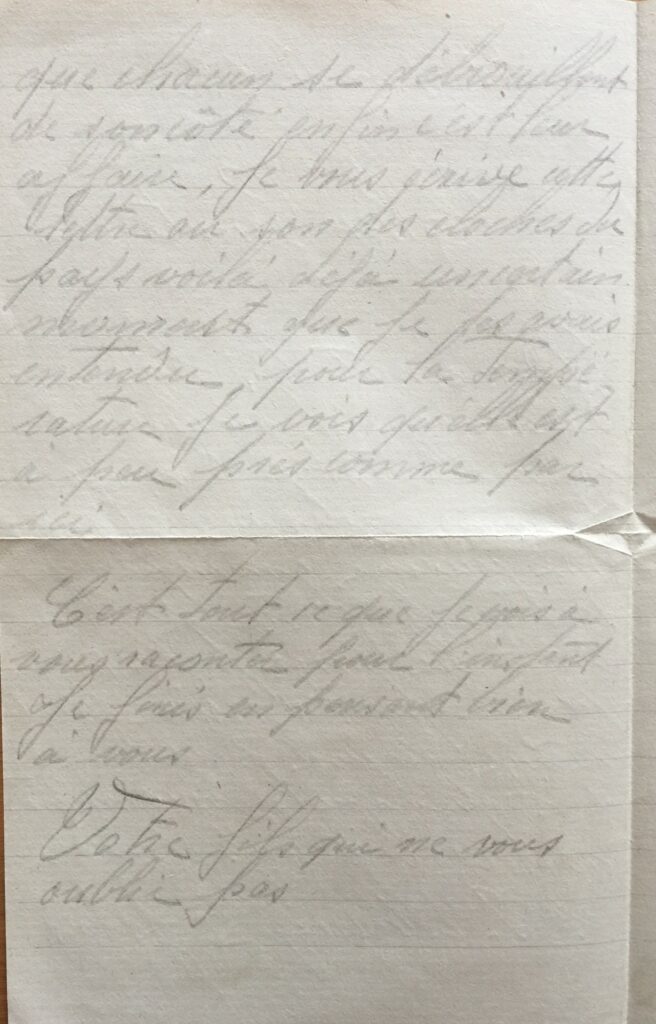 que chacun se débrouillent
de son côté enfin c'est leur
affaire, Je vous écrive cette
lettre au son des cloches du
pays voilà déjà un certain
moment que je les avais
entendu, pour la tempé
rature je vois qu'elle est
à peu près comme par
ici
C'est tout ce que je vois à
vous raconter pour l'instant
Je finis en pensant bien
à vous
Votre fils qui ne vous
oublie pas